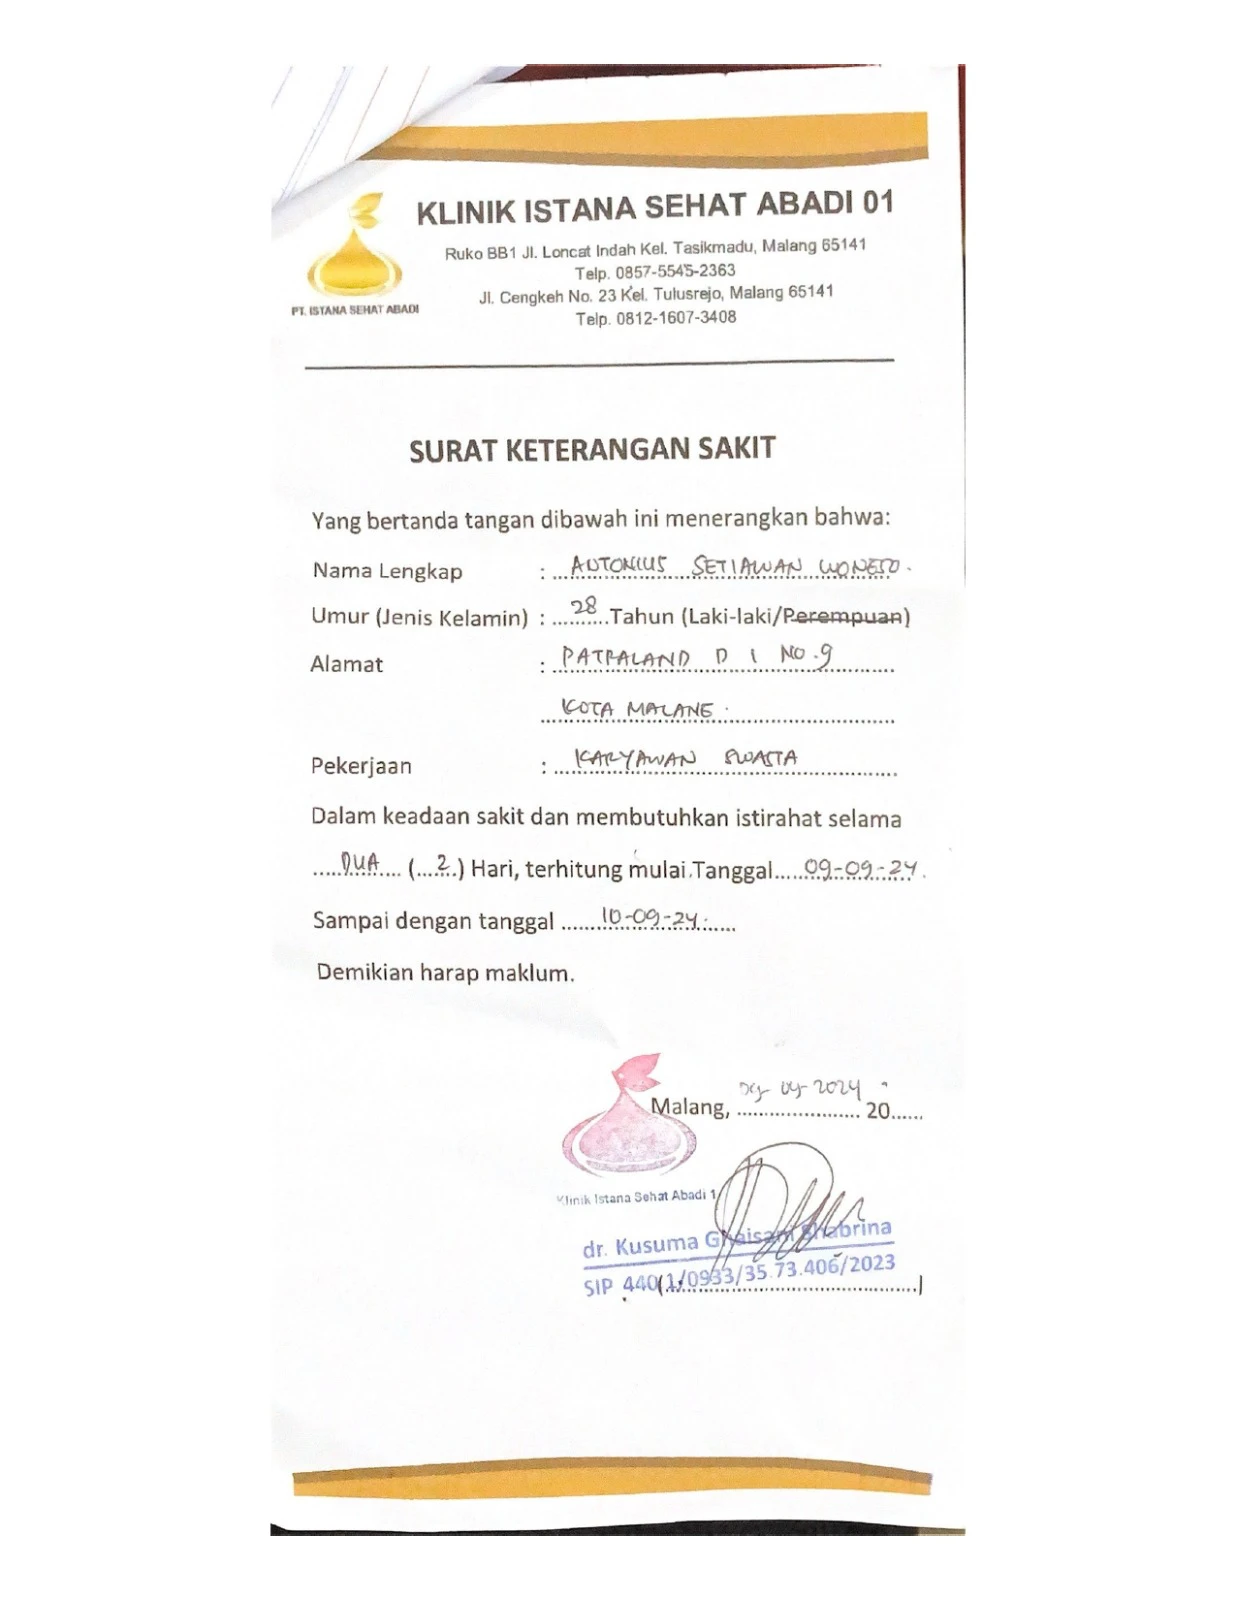 KLINIK ISTANA SEHAT ABADI 01
Ruko BB1 Jl. Loncat Indah Kel. Tasikmadu, Malang 65141
Telp. 0857-5545-2363
Jl. Cengkeh No. 23 Kel. Tulusrejo, Malang 65141
Telp. 0812-1607-3408
PT. ISTANA SEHAT ABADI
SURAT KETERANGAN SAKIT
Yang bertanda tangan dibawah ini menerangkan bahwa:
Nama Lengkap : ANTONIUS SETIAWAN
Umur (Jenis Kelamin) : 28 Tahun (Laki-laki/Perempuan)
Alamat : PATRALAND D 1 NO.9
KOTA MALANG
Pekerjaan : KARYAWAN SWASTA
Dalam keadaan sakit dan membutuhkan istirahat selama
DUA (2) Hari, terhitung mulai Tanggal 09-09-24
Sampai dengan tanggal 10-09-24
Demikian harap maklum.
Malang, 09-09-2024 20......
Klinik Istana Sehat Abadi 1
dr. Kusuma Ghaisani Shabrina
SIP 440(1/0933/35.73.406/2023